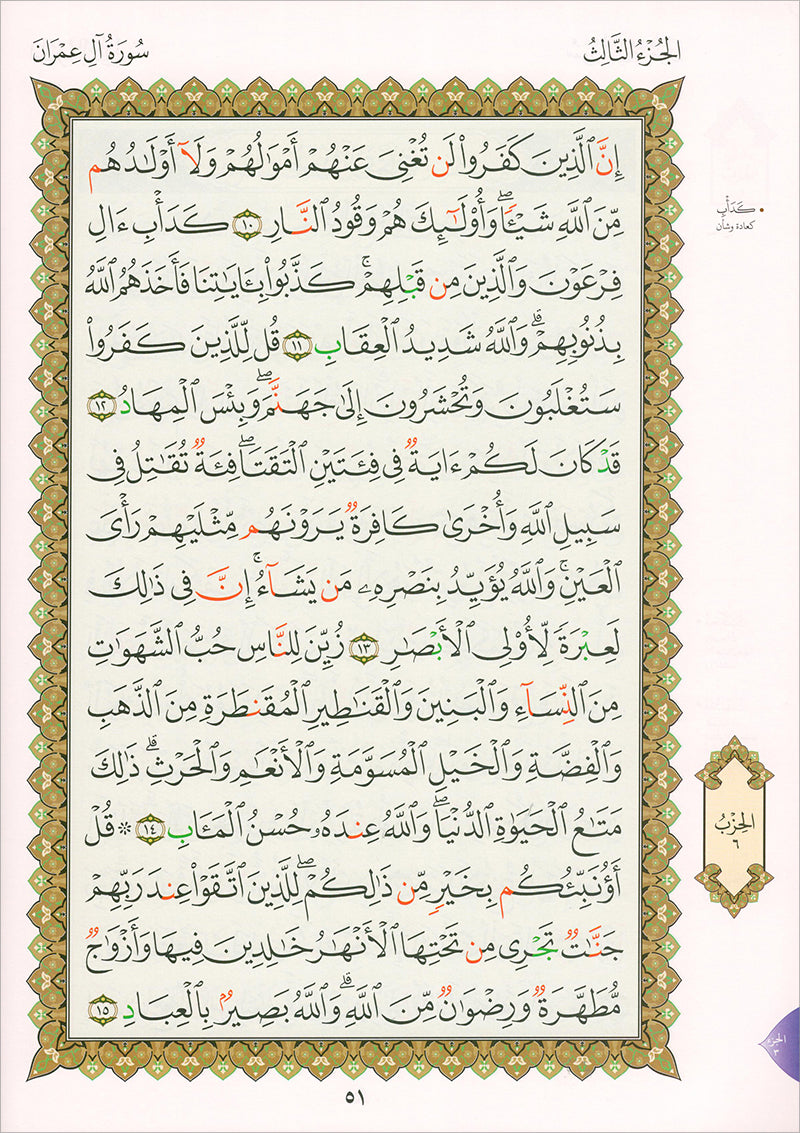 الجُزْءُ الثَّالِثُ
سُورَةُ آلِ عِمْرَانَ
إِنَّ ٱلَّذِينَ كَفَرُوا۟ لَن تُغْنِىَ عَنْهُمْ أَمْوَٰلُهُمْ وَلَآ أَوْلَٰدُهُم
مِّنَ ٱللَّهِ شَيْـًٔا ۖ وَأُو۟لَٰٓئِكَ هُمْ وَقُودُ ٱلنَّارِ ١٠ كَدَأْبِ ءَالِ
فِرْعَوْنَ وَٱلَّذِينَ مِن قَبْلِهِمْ ۚ كَذَّبُوا۟ بِـَٔايَٰتِنَا فَأَخَذَهُمُ ٱللَّهُ
بِذُنُوبِهِمْ ۗ وَٱللَّهُ شَدِيدُ ٱلْعِقَابِ ١١ قُل لِّلَّذِينَ كَفَرُوا۟
سَتُغْلَبُونَ وَتُحْشَرُونَ إِلَىٰ جَهَنَّمَ ۖ وَبِئْسَ ٱلْمِهَادُ ١٢
قَدْ كَانَ لَكُمْ ءَايَةٌ فِى فِئَتَيْنِ ٱلْتَقَتَا ۖ فِئَةٌ تُقَٰتِلُ فِى
سَبِيلِ ٱللَّهِ وَأُخْرَىٰ كَافِرَةٌ يَرَوْنَهُم مِّثْلَيْهِمْ رَأْىَ
ٱلْعَيْنِ ۚ وَٱللَّهُ يُؤَيِّدُ بِنَصْرِهِۦ مَن يَشَآءُ ۗ إِنَّ فِى ذَٰلِكَ
لَعِبْرَةً لِّأُو۟لِى ٱلْأَبْصَٰرِ ١٣ زُيِّنَ لِلنَّاسِ حُبُّ ٱلشَّهَوَٰتِ
مِنَ ٱلنِّسَآءِ وَٱلْبَنِينَ وَٱلْقَنَٰطِيرِ ٱلْمُقَنطَرَةِ مِنَ ٱلذَّهَبِ
وَٱلْفِضَّةِ وَٱلْخَيْلِ ٱلْمُسَوَّمَةِ وَٱلْأَنْعَٰمِ وَٱلْحَرْثِ ۗ ذَٰلِكَ
مَتَٰعُ ٱلْحَيَوٰةِ ٱلدُّنْيَا ۖ وَٱللَّهُ عِندَهُۥ حُسْنُ ٱلْمَـَٔابِ ١٤ * قُلْ
أَؤُنَبِّئُكُم بِخَيْرٍ مِّن ذَٰلِكُمْ ۚ لِلَّذِينَ ٱتَّقَوْا۟ عِندَ رَبِّهِمْ
جَنَّٰتٌ تَجْرِى مِن تَحْتِهَا ٱلْأَنْهَٰرُ خَٰلِدِينَ فِيهَا وَأَزْوَٰجٌ
مُّطَهَّرَةٌ وَرِضْوَٰنٌ مِّنَ ٱللَّهِ ۗ وَٱللَّهُ بَصِيرٌۢ بِٱلْعِبَادِ ١٥
كَدَأْبِ
كعادة وشأن
الحِزْبُ
٦
الجزء
٣
٥١